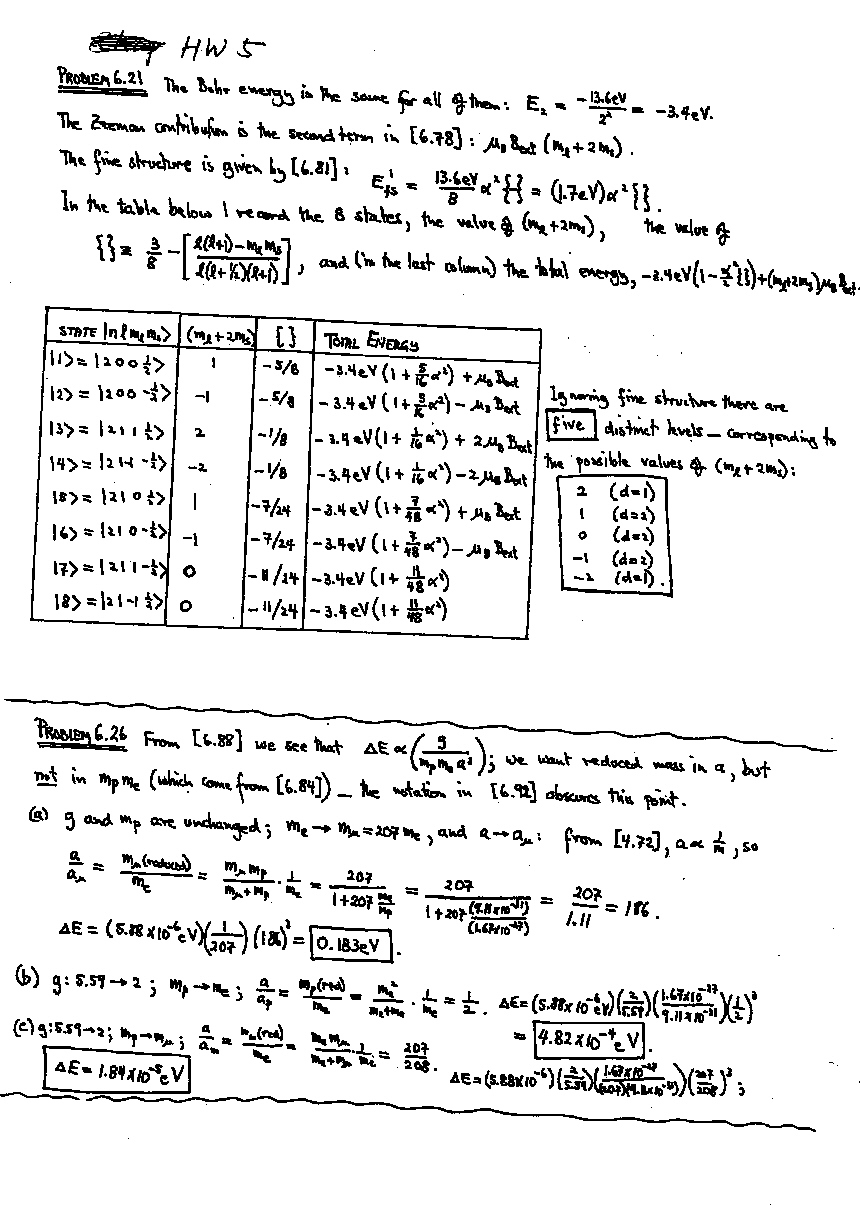 HW 5
PROBLEM 6.21 The Bohr energy is the same for all of them: E₂ = -13.6eV/2² = -3.4eV.
The Zeeman contribution is the second term in [6.78]: μ_B B_ext (m_l + 2m_s).
The fine structure is given by [6.81]: E¹_fs = 13.6eV/8 α² {} = (1.7eV)α² {}.
In the table below I record the 8 states, the value of (m_l+2m_s), the value of
{} ≡ 3/8 - [l(l+1) - m_l m_s / l(l+½)(l+1)], and (in the last column) the total energy, -3.4eV(1 - α²/2 {}) + (m_l+2m_s)μ_B B_ext.
STATE |n l m_l m_s> (m_l+2m_s) {} TOTAL ENERGY
|1> = |2 0 0 ½> 1 -5/8 -3.4eV (1 + 5/16 α²) + μ_B B_ext
|2> = |2 0 0 -½> -1 -5/8 -3.4eV (1 + 5/16 α²) - μ_B B_ext
|3> = |2 1 1 ½> 2 -1/8 -3.4eV (1 + 1/16 α²) + 2μ_B B_ext
|4> = |2 1 -1 -½> -2 -1/8 -3.4eV (1 + 1/16 α²) - 2μ_B B_ext
|5> = |2 1 0 ½> 1 -7/24 -3.4eV (1 + 7/48 α²) + μ_B B_ext
|6> = |2 1 0 -½> -1 -7/24 -3.4eV (1 + 7/48 α²) - μ_B B_ext
|7> = |2 1 1 -½> 0 -11/24 -3.4eV (1 + 11/48 α²)
|8> = |2 1 -1 ½> 0 -11/24 -3.4eV (1 + 11/48 α²)
Ignoring fine structure there are
five distinct levels — corresponding to
the possible values of (m_l + 2m_s):
2 (d=1)
1 (d=2)
0 (d=2)
-1 (d=2)
-2 (d=1).
PROBLEM 6.26 From [6.88] we see that ΔE ∝ (g / m_p m_e a³); we want reduced mass in a, but
not in m_p m_e (which come from [6.84]) — the notation in [6.92] obscures this point.
(a) g and m_p are unchanged; m_e → m_μ = 207 m_e, and a → a_μ: from [4.72], a ∝ 1/m, so
a/a_μ = m_μ(reduced)/m_e = m_μ m_p/(m_μ + m_p) · 1/m_e = 207/(1 + 207 m_e/m_p) = 207/(1 + 207 (9.11×10⁻³¹)/(1.67×10⁻²⁷)) = 207/1.11 = 186.
ΔE = (5.88×10⁻⁶eV)(1/207)(186)³ = 0.183eV.
(b) g: 5.59 → 2; m_p → m_e; a/a_p = m_p(red)/m_e = m_e²/(m_e+m_e) · 1/m_e = 1/2. ΔE = (5.88×10⁻⁶eV)(2/5.59)(1.67×10⁻²⁷/9.11×10⁻³¹)(1/2)³
= 4.82×10⁻⁴ eV.
(c) g: 5.59→2; m_p → m_μ; a/a_m = m_μ(red)/m_e = m_e m_μ/(m_e+m_μ) · 1/m_e = 207/208. ΔE = (5.88×10⁻⁶)(2/5.59)(1.67×10⁻²⁷/(207)(9.11×10⁻³¹))(207/208)³;
ΔE = 1.84×10⁻⁵eV